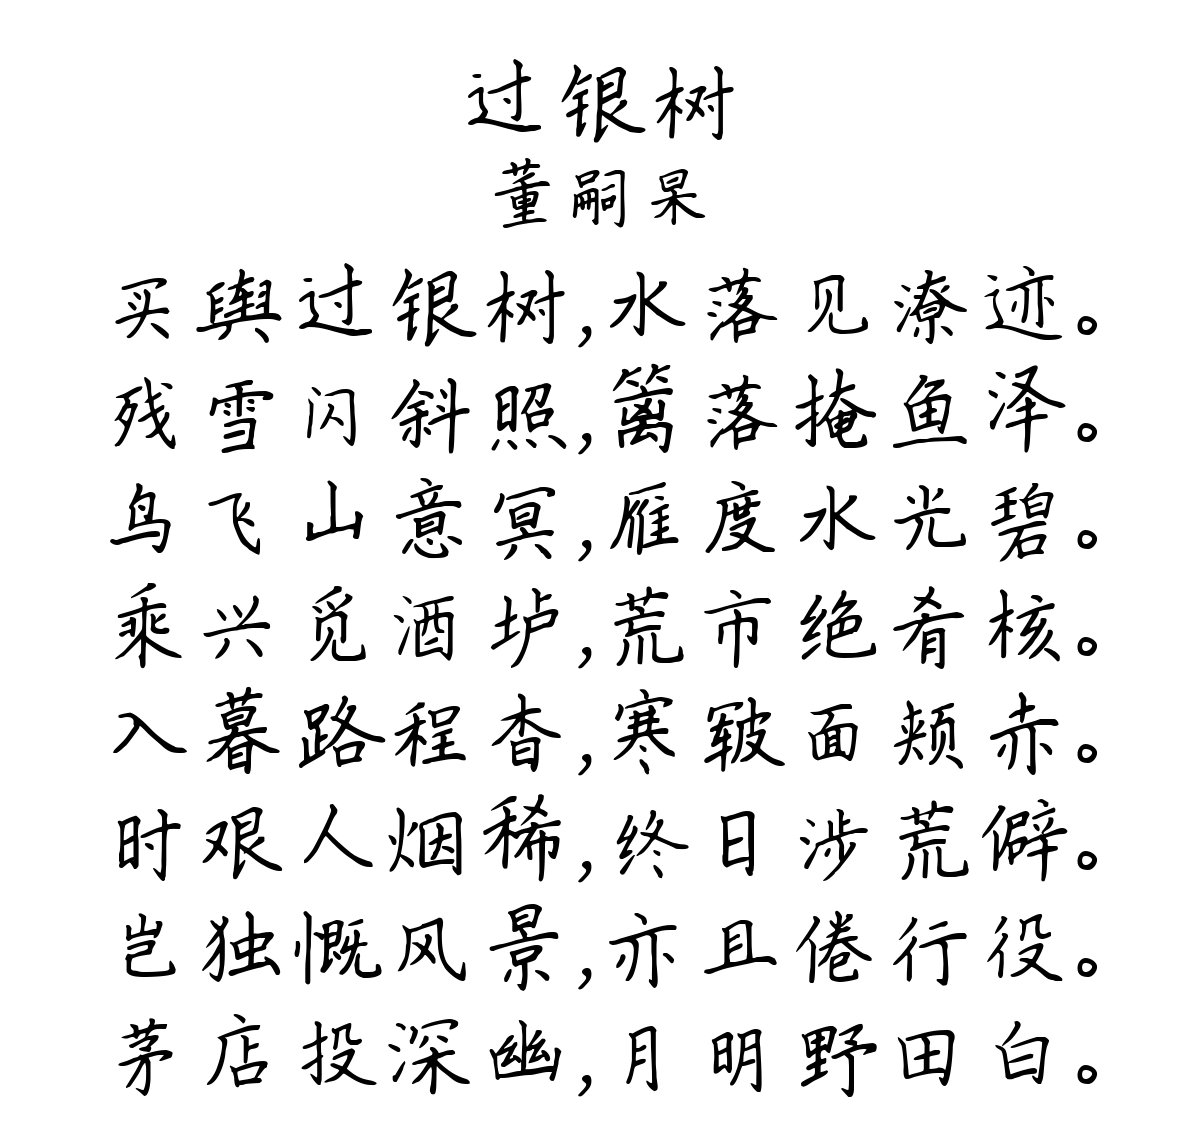 过银树
董嗣杲
买舆过银树,水落见潦迹。
残雪闪斜照,篱落掩鱼泽。
鸟飞山意冥,雁度水光碧。
乘兴觅酒垆,荒市绝肴核。
入暮路程杳,寒皲面颊赤。
时艰人烟稀,终日涉荒僻。
岂独慨风景,亦且倦行役。
茅店投深幽,月明野田白。